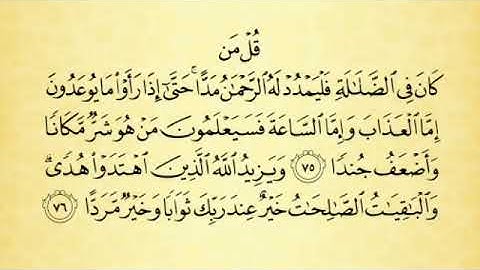 قُلْ مَن
كَانَ فِى ٱلضَّلَٰلَةِ فَلْيَمْدُدْ لَهُ ٱلرَّحْمَٰنُ مَدًّا ۚ حَتَّىٰٓ إِذَا رَأَوْا۟ مَا يُوعَدُونَ
إِمَّا ٱلْعَذَابَ وَإِمَّا ٱلسَّاعَةَ فَسَيَعْلَمُونَ مَنْ هُوَ شَرٌّ مَّكَانًا
وَأَضْعَفُ جُندًا ٧٥ وَيَزِيدُ ٱللَّهُ ٱلَّذِينَ ٱهْتَدَوْا۟ هُدًى ۗ
وَٱلْبَٰقِيَٰتُ ٱلصَّٰلِحَٰتُ خَيْرٌ عِندَ رَبِّكَ ثَوَابًا وَخَيْرٌ مَّرَدًّا ٧٦